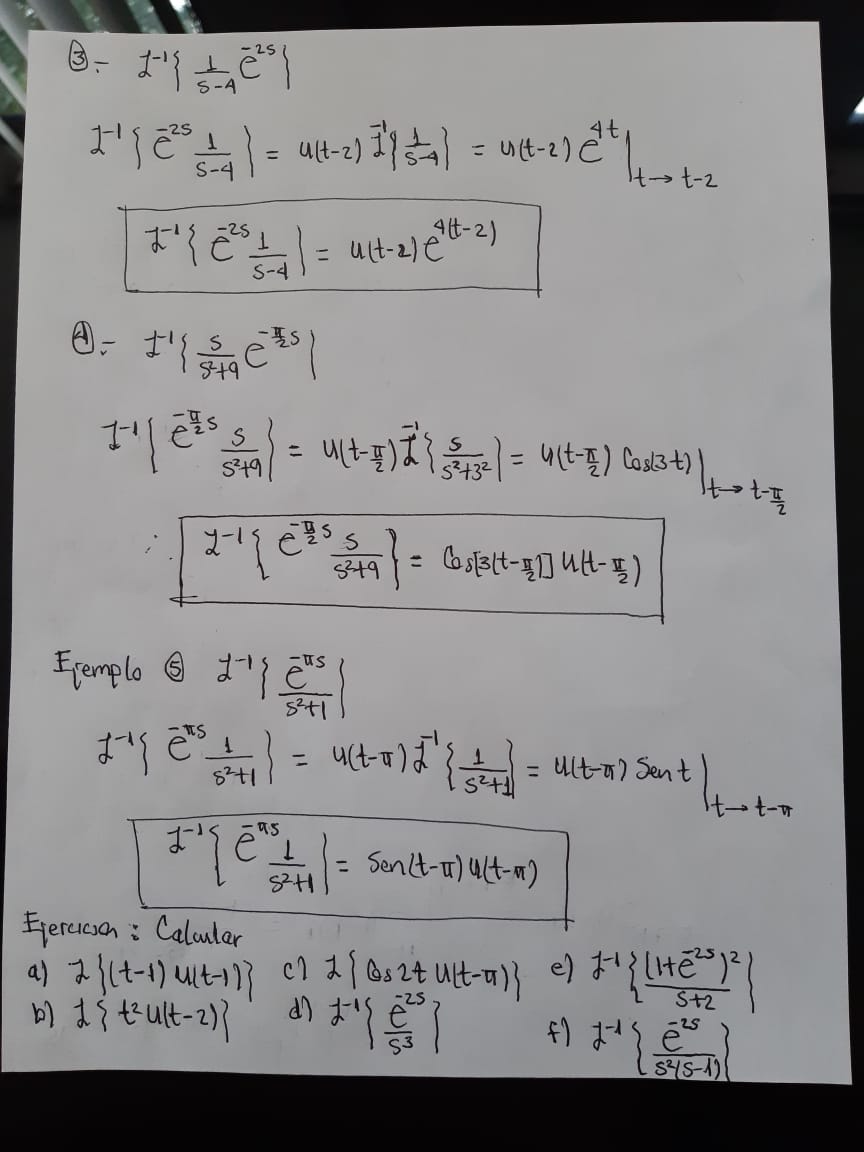 ③.- ℒ⁻¹{ 1/(s-4) e^(-2s) }
ℒ⁻¹{ e^(-2s) 1/(s-4) } = u(t-2) ℒ⁻¹{ 1/(s-4) } = u(t-2) e^(4t) |_(t→t-2)
ℒ⁻¹{ e^(-2s) 1/(s-4) } = u(t-2) e^(4(t-2))
④.- ℒ⁻¹{ s/(s²+9) e^(-π/2 s) }
ℒ⁻¹{ e^(-π/2 s) s/(s²+9) } = u(t-π/2) ℒ⁻¹{ s/(s²+3²) } = u(t-π/2) Cos(3t) |_(t→t-π/2)
∴ ℒ⁻¹{ e^(-π/2 s) s/(s²+9) } = Cos[3(t-π/2)] u(t-π/2)
Ejemplo ⑤ ℒ⁻¹{ e^(-πs)/(s²+1) }
ℒ⁻¹{ e^(-πs) 1/(s²+1) } = u(t-π) ℒ⁻¹{ 1/(s²+1) } = u(t-π) Sen t |_(t→t-π)
ℒ⁻¹{ e^(-πs) 1/(s²+1) } = Sen(t-π) u(t-π)
Ejercicios : Calcular
a) ℒ{(t-1) u(t-1)} c) ℒ{Cos 2t u(t-π)} e) ℒ⁻¹{ (1+e^(-2s))²/(s+2) }
b) ℒ{ t² u(t-2)} d) ℒ⁻¹{ e^(-2s)/s³ } f) ℒ⁻¹{ e^(-2s)/(s²(s-1)) }